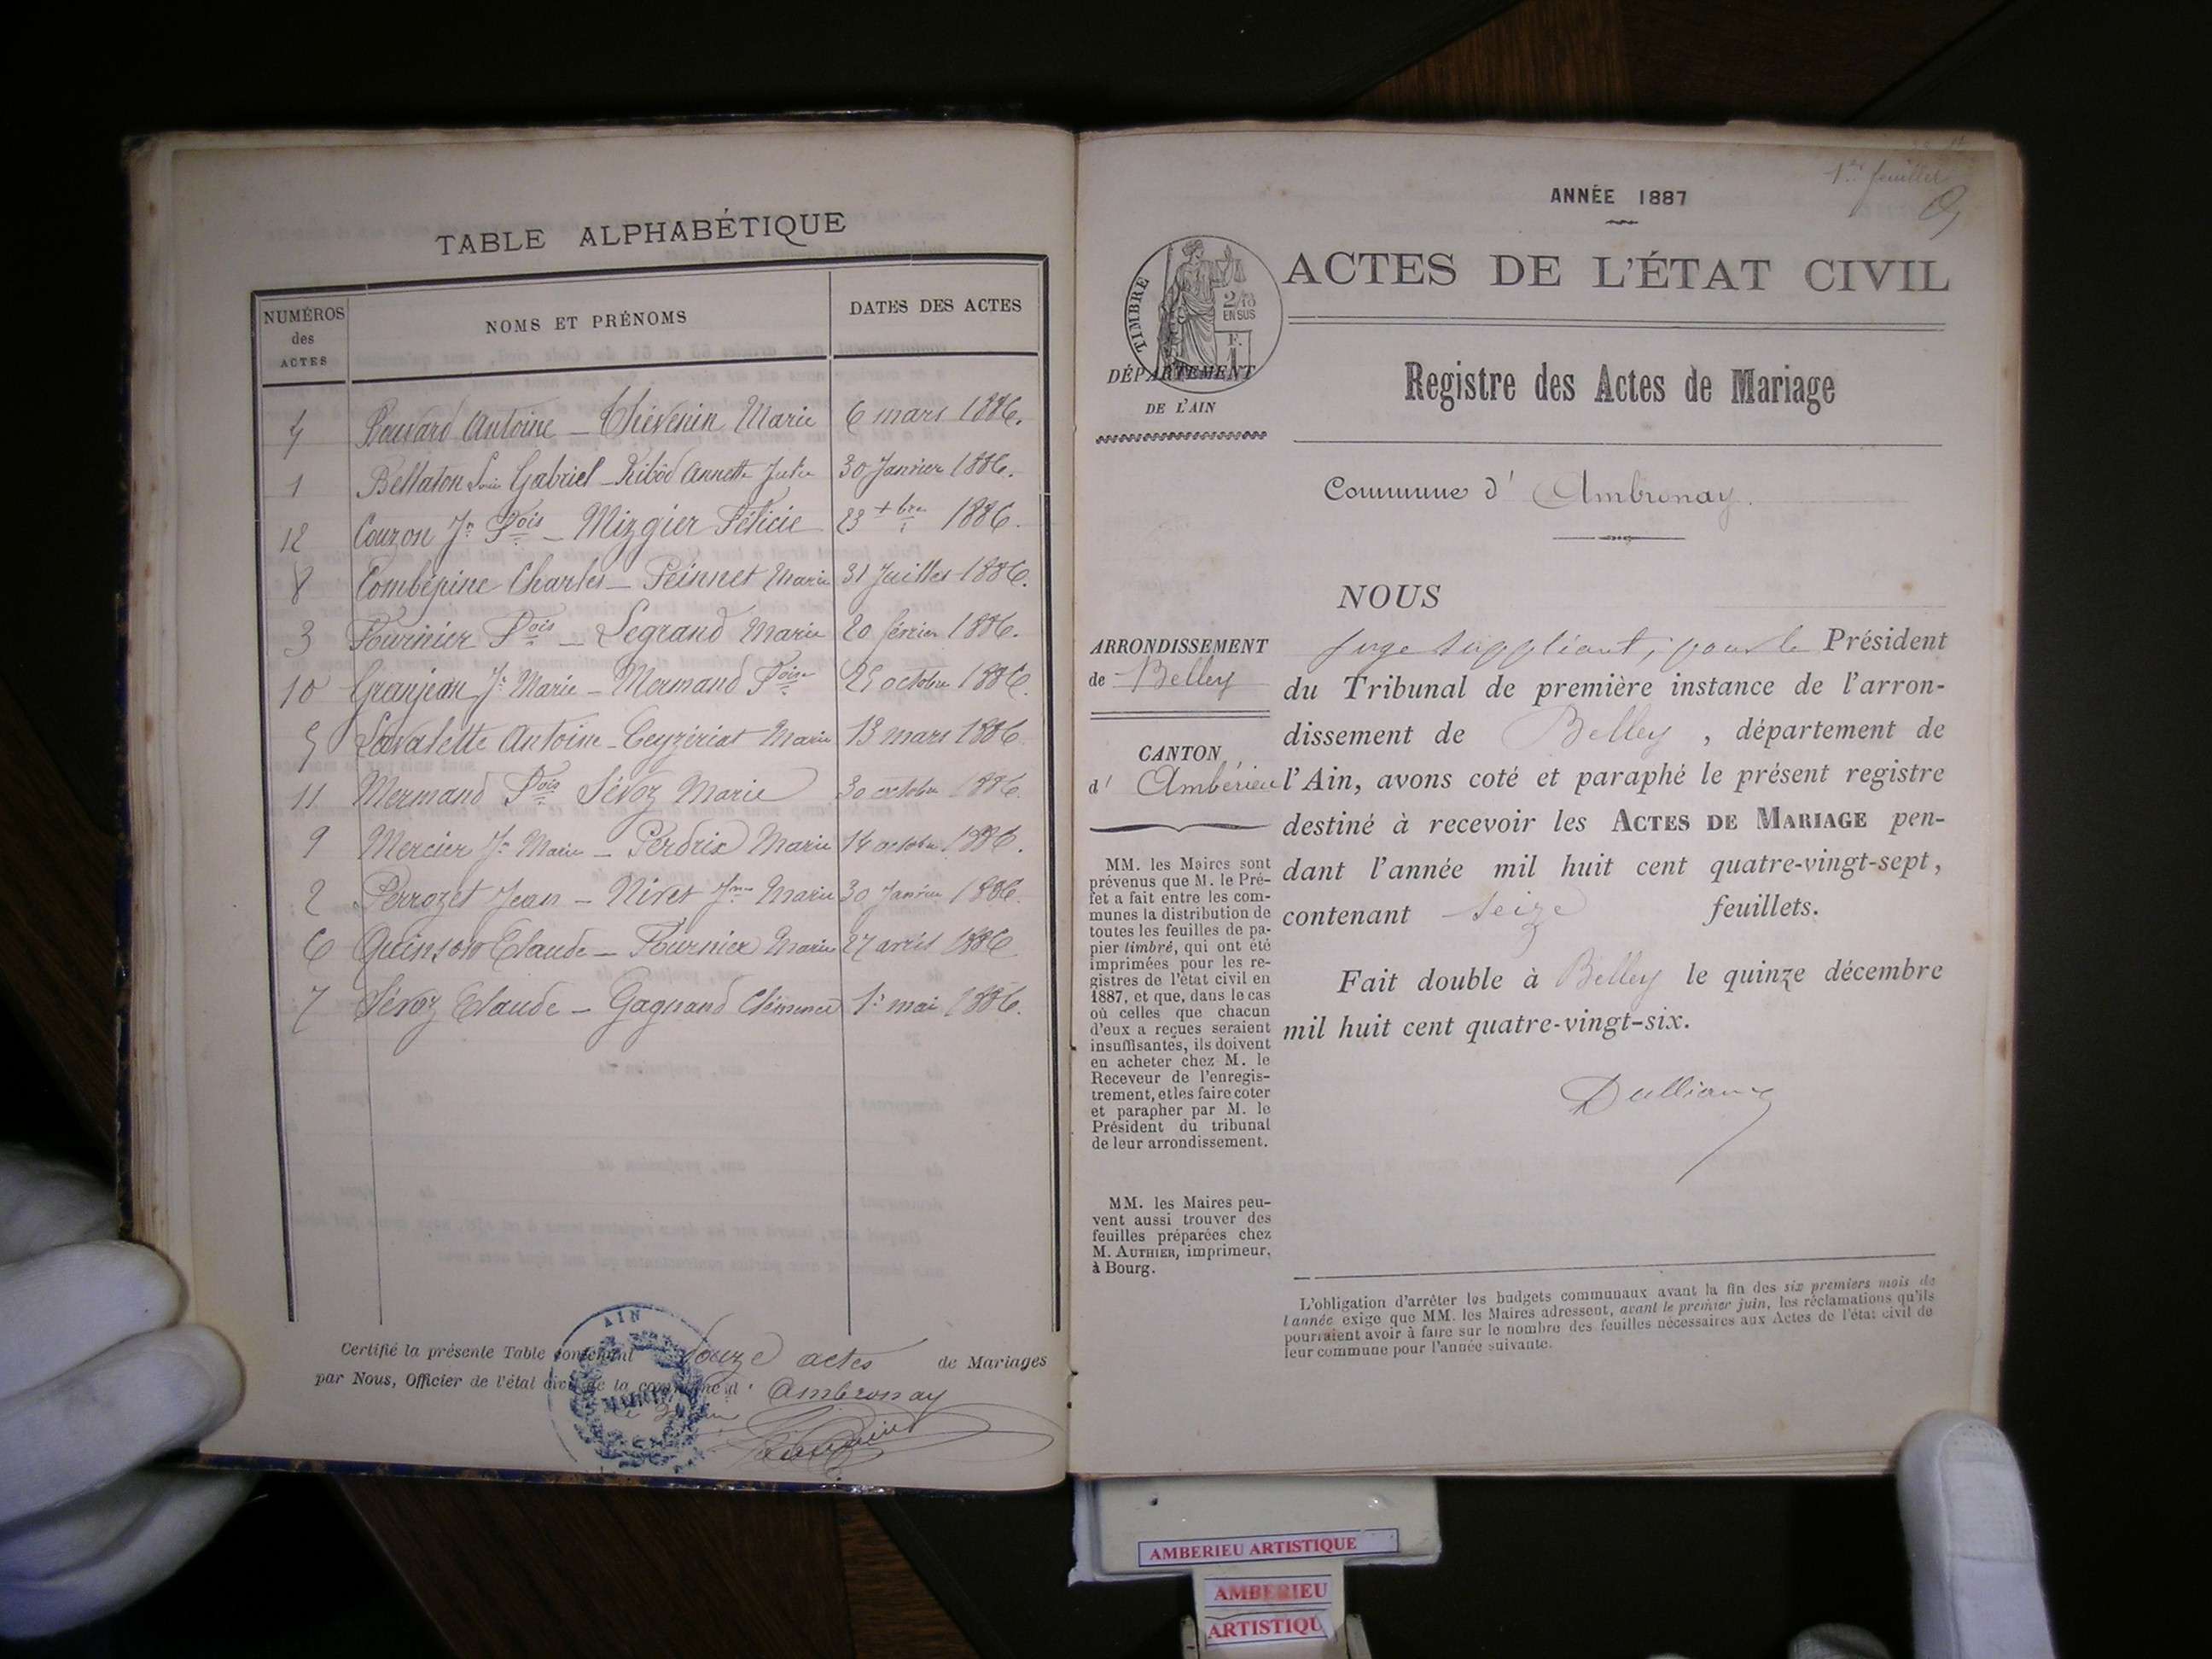 TABLE ALPHABÉTIQUE
NUMÉROS des ACTES
NOMS ET PRÉNOMS
DATES DES ACTES
4 Bouvard Antoine _ Thévenin Marie 6 mars 1886.
1 Bellaton Louis Gabriel _ Ribôd Annette 30 Janvier 1886.
12 Couzon Jn Fois _ Mizgier Félicie 23 + bre 1886.
8 Combépine Charles _ Peinnet Marie 31 Juillet 1886.
3 Fournier Fois _ Legrand Marie 20 février 1886.
10 Granjean Jn Marie _ Mermand Foise octobre 1886.
5 Lavalette Antoine _ Ceyzériat Marie 13 mars 1886
11 Mermand Fois Sévoz Marie 30 octobre 1886.
9 Mercier Jn Marie _ Perdrix Marie 14 octobre 1886.
2 Perrozet Jean _ Nivet Jne Marie 30 Janvier 1886.
6 Quinson Claude _ Fournier Marie 27 avril 1886
7 Sévoz Claude _ Gagnand Clémence 1er mai 1886.
Certifié la présente Table contenant douze actes de Mariages
par Nous, Officier de l'état civil de la commune d' Ambronay
AIN
MAIRIE
1er feuillet
ANNÉE 1887
TIMBRE
2/10
EN SUS
F.
1
ACTES DE L'ÉTAT CIVIL
DÉPARTEMENT
DE L'AIN
Registre des Actes de Mariage
Commune d' Ambronay.
ARRONDISSEMENT
de Belley
CANTON
d' Ambérieu
MM. les Maires sont
prévenus que M. le Pré-
fet a fait entre les com-
munes la distribution de
toutes les feuilles de pa-
pier timbré, qui ont été
imprimées pour les re-
gistres de l'état civil en
1887, et que, dans le cas
où celles que chacun
d'eux a reçues seraient
insuffisantes, ils doivent
en acheter chez M. le
Receveur de l'enregis-
trement, et les faire coter
et parapher par M. le
Président du tribunal
de leur arrondissement.
MM. les Maires peu-
vent aussi trouver des
feuilles préparées chez
M. AUTHIER, imprimeur,
à Bourg.
NOUS
Juge suppléant, pour le Président
du Tribunal de première instance de l'arron-
dissement de Belley, département de
l'Ain, avons coté et paraphé le présent registre
destiné à recevoir les ACTES DE MARIAGE pen-
dant l'année mil huit cent quatre-vingt-sept,
contenant seize feuillets.
Fait double à Belley le quinze décembre
mil huit cent quatre-vingt-six.
L'obligation d'arrêter les budgets communaux avant la fin des six premiers mois de
l'année exige que MM. les Maires adressent, avant le premier juin, les réclamations qu'ils
pourraient avoir à faire sur le nombre des feuilles nécessaires aux Actes de l'état civil de
leur commune pour l'année suivante.
AMBERIEU ARTISTIQUE
AMBERIEU
ARTISTIQU